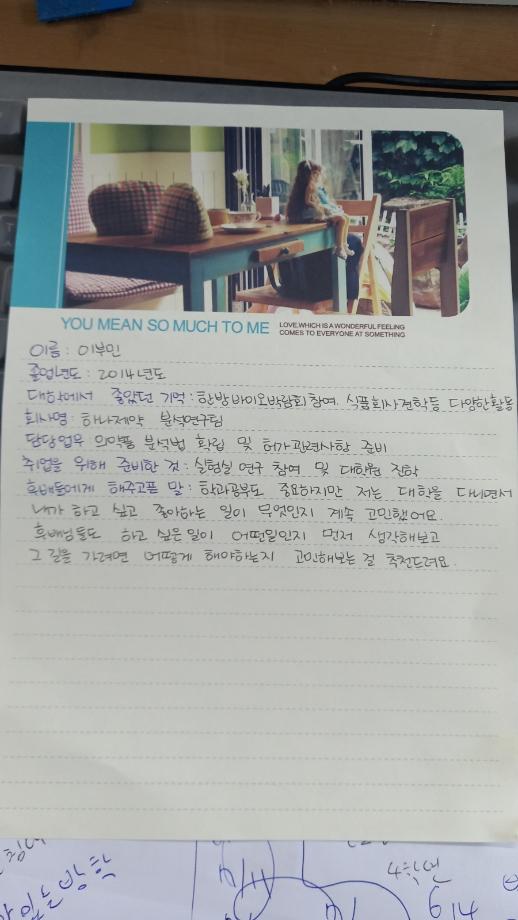 YOU MEAN SO MUCH TO ME
LOVE,WHICH IS A WONDERFUL FEELING
COMES TO EVERYONE AT SOMETHING
이름 : 이부민
졸업년도 : 2014년도
대학에서 좋았던 기억 : 한방바이오박람회 참여, 식품회사견학등 다양한활동
회사명 : 하나제약 분석연구팀
담당업무 의약품 분석법 확립 및 허가관련사항 준비
취업을 위해 준비한 것 : 실험실 연구 참여 및 대학원 진학
후배들에게 해주고픈 말 : 학과공부도 중요하지만 저는 대학을 다니면서
내가 하고 싶고 좋아하는 일이 무엇인지 계속 고민했어요.
후배님들도 하고 싶은일이 어떤일인지 먼저 생각해보고
그 길을 가려면 어떻게 해야하는지 고민해보는 걸 추천드려요.
4학년